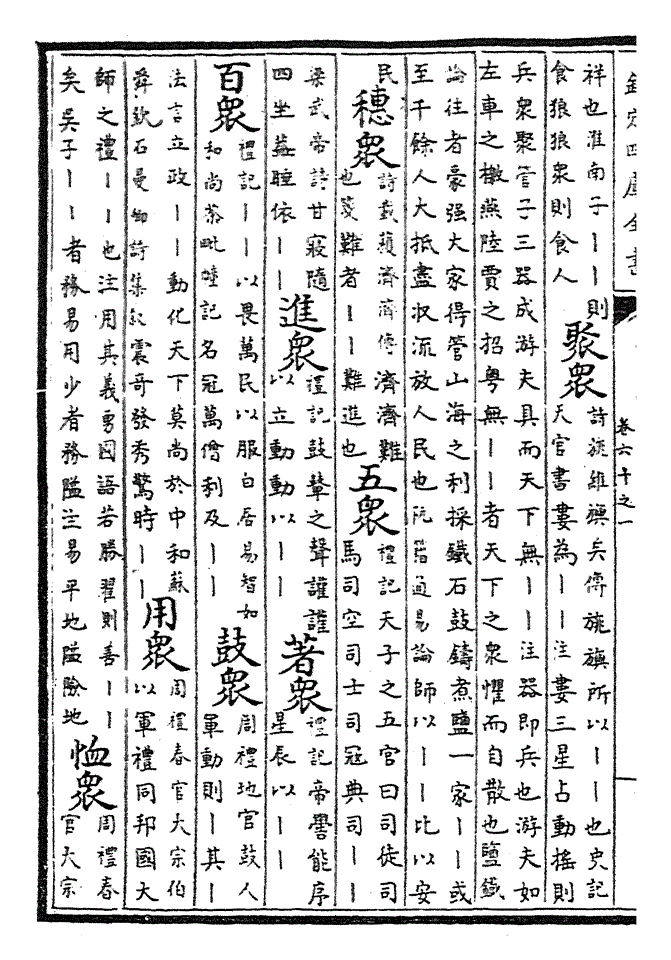 欽定四庫全書
卷六十之一
祥也淮南子丨丨則
食狼狼衆則食人
聚衆
詩旐維旟矣傳旐旟所以丨丨也史記
天官書婁為丨丨注婁三星占動搖則
兵衆聚管子三器成游夫具而天下無丨丨注器即兵也游夫如
左車之檄燕陸賈之招粤無丨丨者天下之衆懼而自散也鹽鐵
論往者豪强大家得管山海之利採鐵石鼓鑄煮鹽一家丨丨或
至千餘人大抵盡收流放人民也阮籍通易論師以丨丨比以安
民
穗衆
詩載穫濟濟傳濟濟難
也箋難者丨丨難進也
五衆
禮記天子之五官曰司徒司
馬司空司士司寇典司丨丨
梁武帝詩甘寢隨
四坐蓋睡依丨丨
進衆
禮記鼓鼙之聲讙讙
以立動動以丨丨
著衆
禮記帝嚳能序
星辰以丨丨
百衆
禮記丨丨以畏萬民以服白居易智如
和尚荼毗幢記名冠萬僧利及丨丨
鼓衆
周禮地官鼓人
軍動則丨其丨
法言立政丨丨動化天下莫尚於中和蘇
舜欽石曼卿詩集敘震哥發秀驚時丨丨
用衆
周禮春官大宗伯
以軍禮同邦國大
師之禮丨丨也注用其義勇國語若勝翟則善丨丨
矣吳子丨丨者務易用少者務隘注易平地隘險地
恤衆
周禮春
官大宗